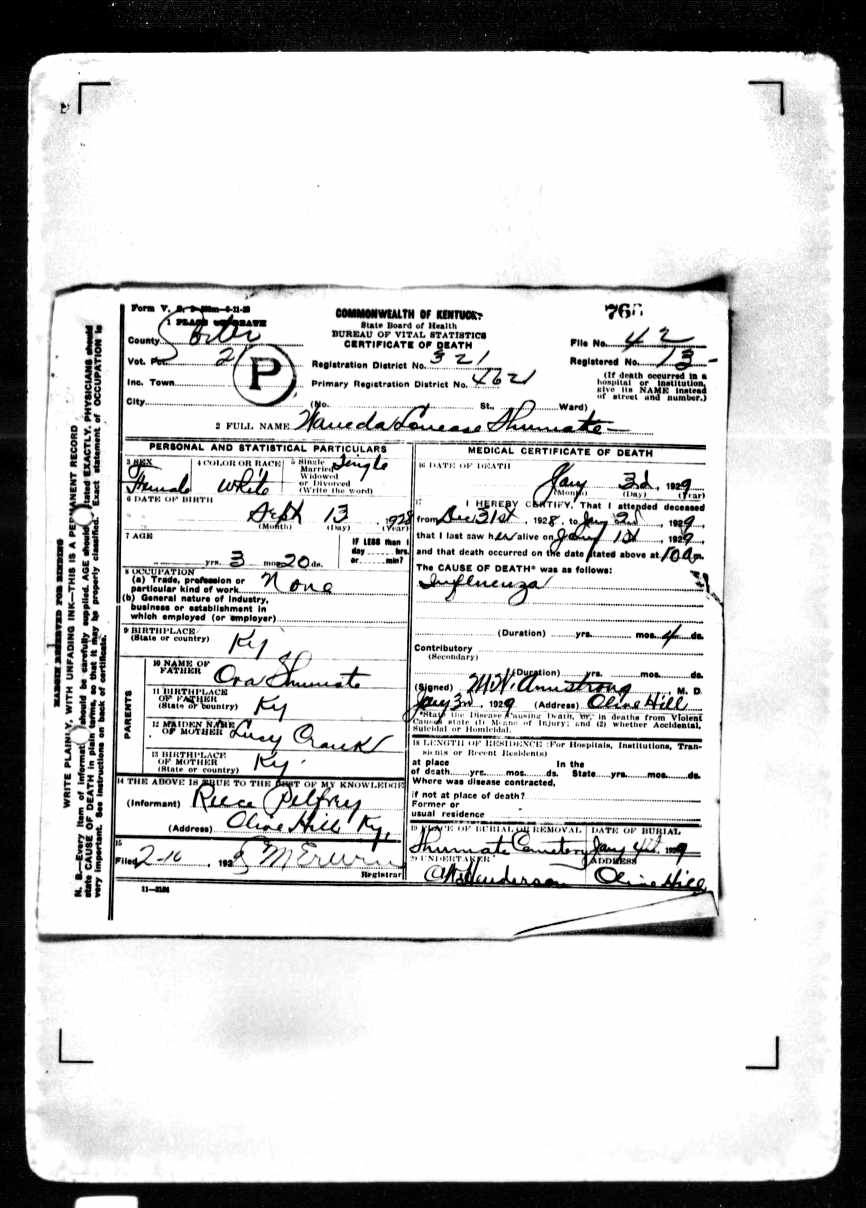 Form V. S.
COMMONWEALTH OF KENTUCKY
State Board of Health
BUREAU OF VITAL STATISTICS
CERTIFICATE OF DEATH
1 PLACE OF DEATH
County Carter
Vot. Pct. 2
P
Inc. Town
City
Registration District No. 321
Primary Registration District No. 4621
(No. St., Ward)
File No. 42
Registered No. 13
(If death occurred in a
hospital or institution,
give its NAME instead
of street and number.)
2 FULL NAME Waneda Louease Shumate
PERSONAL AND STATISTICAL PARTICULARS
3 SEX
Female
4 COLOR OR RACE
White
5 Single
Married
Widowed
or Divorced
(Write the word)
Single
6 DATE OF BIRTH
Sept 13, 1928
(Month) (Day) (Year)
7 AGE
yrs. 3 mos. 20 ds.
IF LESS than 1
day hrs.
or min?
8 OCCUPATION
(a) Trade, profession or
particular kind of work None
(b) General nature of industry,
business or establishment in
which employed (or employer)
9 BIRTHPLACE
(State or country) Ky
PARENTS
10 NAME OF
FATHER Ora Shumate
11 BIRTHPLACE
OF FATHER
(State or country) Ky
12 MAIDEN NAME
OF MOTHER Lucy
13 BIRTHPLACE
OF MOTHER
(State or country) Ky.
14 THE ABOVE IS TRUE TO THE BEST OF MY KNOWLEDGE
(Informant) Reece Pelfrey
(Address) Olive Hill Ky,
15
Filed 2-10, 192
Registrar
11—3184
MEDICAL CERTIFICATE OF DEATH
16 DATE OF DEATH
Jany 3rd, 1929
(Month) (Day) (Year)
17 I HEREBY CERTIFY, That I attended deceased
from Dec 31st, 1928, to Jany 2nd, 1929,
that I last saw her alive on Jany, 1929,
and that death occurred on the date stated above at 10 a m.
The CAUSE OF DEATH* was as follows:
Influenza
(Duration) yrs. mos. 4 ds.
Contributory
(Secondary)
(Duration) yrs. mos. ds.
(Signed) M.W. Armstrong M. D.
Jany 3rd, 1929 (Address) Olive Hill
*State the Disease Causing Death, or, in deaths from Violent
Causes state (1) Means of Injury; and (2) whether Accidental,
Suicidal or Homicidal.
18 LENGTH OF RESIDENCE (For Hospitals, Institutions, Tran-
sients or Recent Residents)
at place In the
of death yrs. mos. ds. State yrs. mos. ds.
Where was disease contracted,
if not at place of death?
Former or
usual residence
19 PLACE OF BURIAL OR REMOVAL
Shumate Cemetery
DATE OF BURIAL
Jany 4th, 1929
20 UNDERTAKER
Henderson
ADDRESS
Olive Hill
MARGIN RESERVED FOR BINDING
WRITE PLAINLY, WITH UNFADING INK—THIS IS A PERMANENT RECORD
N. B.—Every item of information should be carefully supplied. AGE should be stated EXACTLY. PHYSICIANS should
state CAUSE OF DEATH in plain terms, so that it may be properly classified. Exact statement of OCCUPATION is
very important. See instructions on back of certificate.